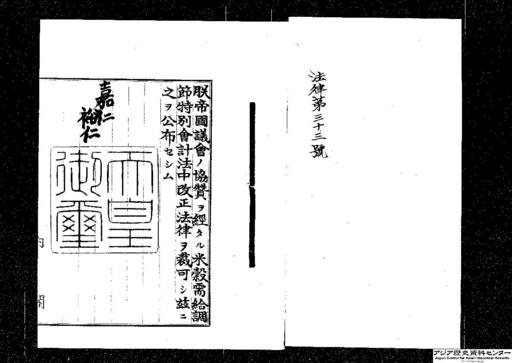 法律第三十三號
朕帝國議會ノ協賛ヲ經タル米穀需給調
節特別會計法中改正法律ヲ裁可シ茲ニ
之ヲ公布セシム
嘉仁
裕仁
天皇
御璽
内閣
アジア歴史資料センター
Japan Center for Asian Historical Records